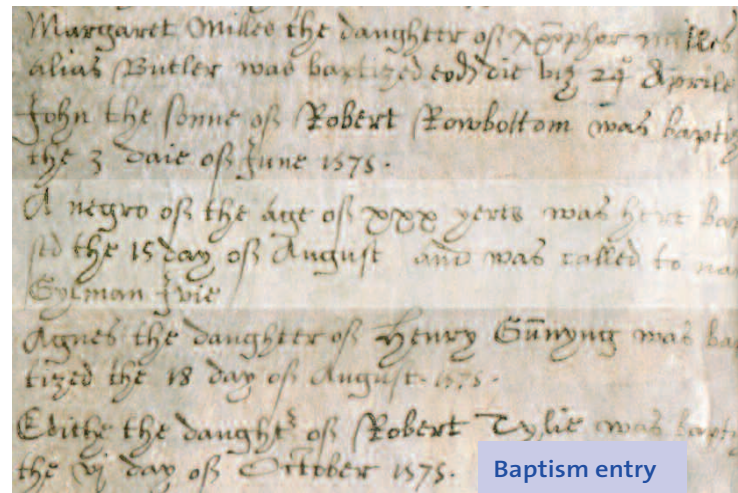 Margaret Milles the daughter of xpofer milles
alias Butler was baptized eod die viz 24 Aprile
John the sonne of Robert Rowbottom was baptiz
the 3 daie of June 1575.
A negro of the age of xxx yeres was here bap
sed the 15 day of August and was called to na
Gylman Jvie
Agnes the daughter of Henry Gunnyng was bap
tized the 18 day of August. 1575.
Edithe the daught of Robert Tylie was bapti
the vj day of October 1575.
Baptism entry